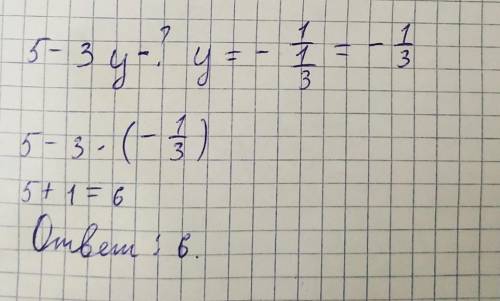 5 - 3y - ? y = - 1/(1/3) = - 1/3
5 - 3 · (- 1/3)
5 + 1 = 6
Ответ: 6.